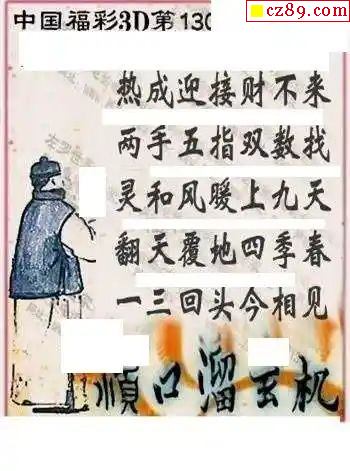 cz89.com
中国福彩3D第130
热成迎接财不来
两手五指双数找
灵和风暖上九天
翻天覆地四季春
一三回头今相见
顺口溜玄机